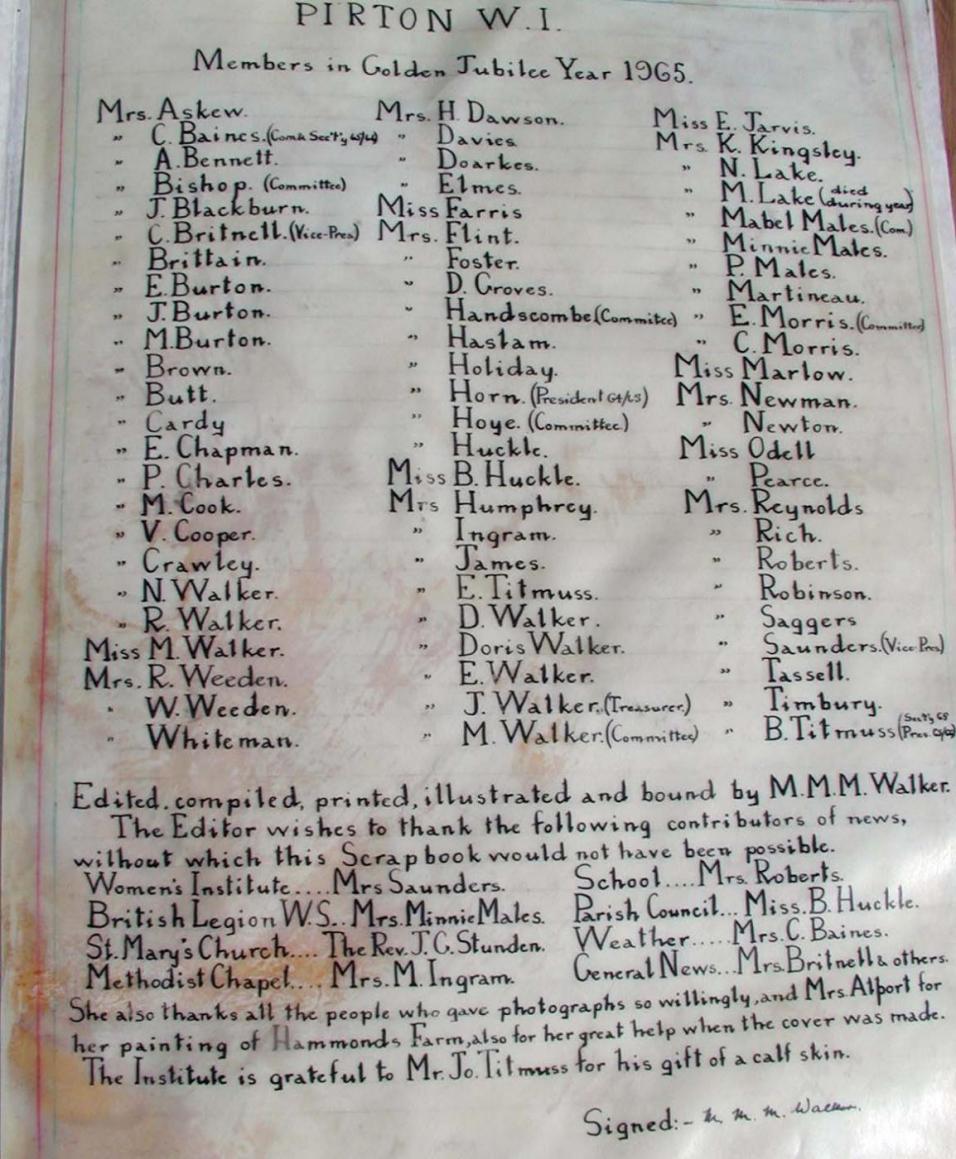 PIRTON W.I.
Members in Golden Jubilee Year 1965.
Mrs. Askew.
" C. Baines. (Com & Sec't'y 65/66)
" A. Bennett.
" Bishop. (Committee)
" J. Blackburn.
" C. Britnell. (Vice-Pres)
" Brittain.
" E. Burton.
" J. Burton.
" M. Burton.
" Brown.
" Butt.
" Cardy
" E. Chapman.
" P. Charles.
" M. Cook.
" V. Cooper.
" Crawley.
" N. Walker.
" R. Walker.
Miss M. Walker.
Mrs. R. Weeden.
" W. Weeden.
" Whiteman.
Mrs. H. Dawson.
" Davies
" Doarkes.
" Elmes.
Miss Farris
Mrs. Flint.
" Foster.
" D. Groves.
" Handscombe (Committee)
" Haslam.
" Holiday.
" Horn. (President 64/65)
" Hoye. (Committee)
" Huckle.
Miss B. Huckle.
Mrs Humphrey.
" Ingram.
" James.
" E. Titmuss.
" D. Walker.
" Doris Walker.
" E. Walker.
" J. Walker. (Treasurer.)
" M. Walker. (Committee)
Miss E. Jarvis.
Mrs. K. Kingsley.
" N. Lake.
" M. Lake (died during year)
" Mabel Males. (Com.)
" Minnie Males.
" P. Males.
" Martineau.
" E. Morris. (Committee)
" C. Morris.
Miss Marlow.
Mrs. Newman.
" Newton.
Miss Odell
" Pearce.
Mrs. Reynolds
" Rich.
" Roberts.
" Robinson.
" Saggers
" Saunders. (Vice Pres)
" Tassell.
" Timbury.
" B. Titmuss
Edited, compiled, printed, illustrated and bound by M.M.M. Walker.
The Editor wishes to thank the following contributors of news,
without which this Scrapbook would not have been possible.
Women's Institute.... Mrs Saunders.
British Legion W.S.. Mrs. Minnie Males.
St. Mary's Church.... The Rev. J.G. Stunden.
Methodist Chapel.... Mrs. M. Ingram.
School.... Mrs. Roberts.
Parish Council... Miss. B. Huckle.
Weather..... Mrs. C. Baines.
General News... Mrs. Britnell & others.
She also thanks all the people who gave photographs so willingly, and Mrs. Alport for
her painting of Hammonds Farm, also for her great help when the cover was made.
The Institute is grateful to Mr. Jo. Titmuss for his gift of a calf skin.
Signed:- M. M. M. Walker.